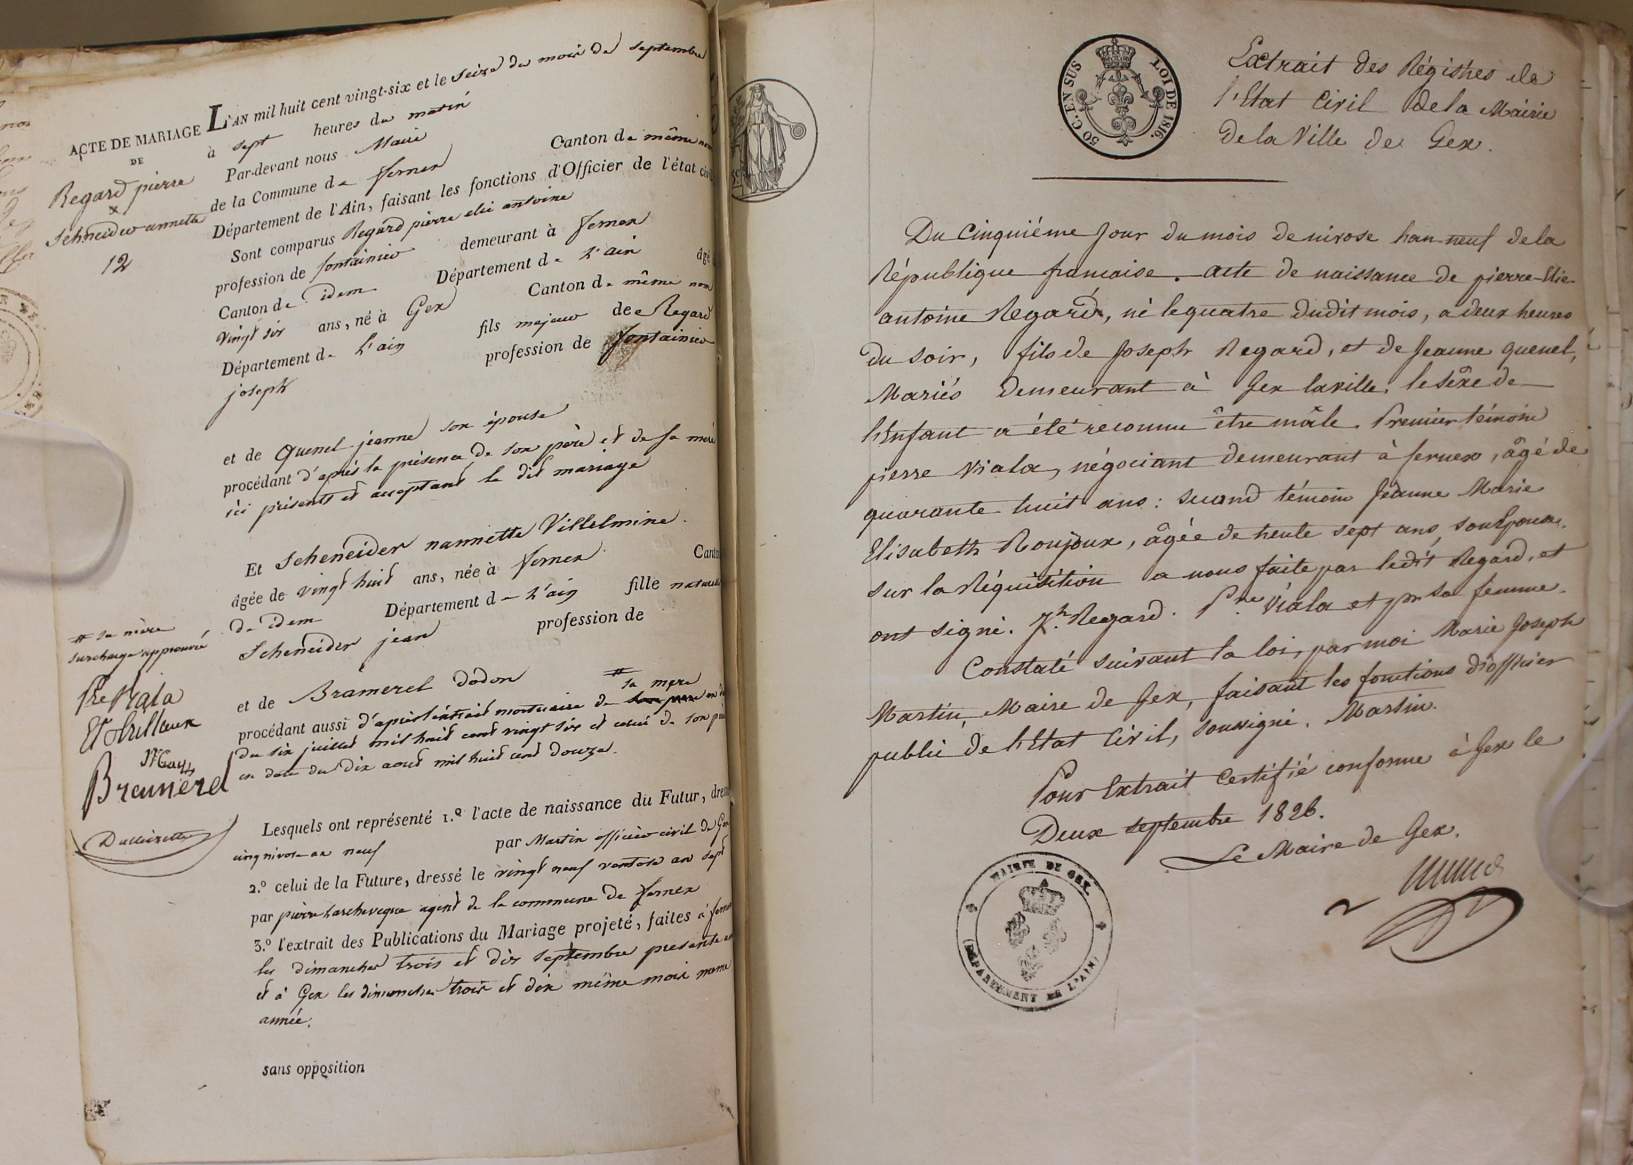 ACTE DE MARIAGE
DE
Regard pierre
&
Schneider annette
12
L'AN mil huit cent vingt-six et le seize du mois de septembre
à sept heures du matin
Par-devant nous Maire
de la Commune de fernex Canton de même nom
Département de l'Ain, faisant les fonctions d'Officier de l'état civil
Sont comparus Regard pierre elie antoine
profession de fontainier demeurant à fernex
Canton de idem Département de l'ain âgé
vingt six ans, né à Gex Canton de même nom
Département de l'ain fils majeur de Regard
joseph profession de fontainier
et de Quenel jeanne son épouse
procédant d'après la présence de son père et de sa mère
ici présents et acceptant le dit mariage
Et Scheneider nannette Villelmine
âgée de vingt huit ans, née à fernex Canton
de idem Département de l'ain fille naturelle
Scheneider jean profession de
et de Bramerel dodon
# sa mère
procédant aussi d'après l'extrait mortuaire de
du six juillet mil huit cent vingt six et celui de son père
en date du dix aout mil huit cent douze.
# sa mère
surcharge approuvée
Pre Viala
Bramerel
Lesquels ont représenté 1.º l'acte de naissance du Futur, dressé
cinq nivose an neuf par Martin officier civil de Gex
2.º celui de la Future, dressé le vingt neuf ventose an sept
par pierre larcheveque agent de la commune de fernex
3.º l'extrait des Publications du Mariage projeté, faites à fernex
les dimanches trois et dix septembre presente
et à Gex les dimanches trois et dix même mois meme
année.
sans opposition
50 C. EN SUS LOI DE 1816.
Extrait des Régistres de
l'Etat Civil de la Mairie
de la Ville de Gex.
Du Cinquiéme Jour du mois de nivose l'an neuf de la
République francaise. acte de naissance de pierre-Elie-
antoine Regard, né le quatre dudit mois, a deux heures
du soir, fils de Joseph Regard, et de Jeanne Quenel,
Mariés demeurant à Gex la ville. le sexe de
l'Enfant a été reconnu être mâle. Premier témoin
pierre Viala, négociant demeurant à fernex, âgé de
quarante huit ans : second témoin Jeanne Marie
Elisabeth Roujoux, âgée de trente sept ans, son Epouse.
sur la Réquisition a nous faite par ledit Regard, et
ont signé. Jh. Regard. Pre Viala et pr sa femme.
Constaté suivant la loi, par moi Marie Joseph
Martin, Maire de Gex, faisant les fonctions d'officier
public de l'Etat Civil, soussigné. Martin.
Pour Extrait Certifié conforme à Gex le
Deux septembre 1826.
Le Maire de Gex.
MAIRIE DE GEX.
(DÉPARTEMENT DE L'AIN)